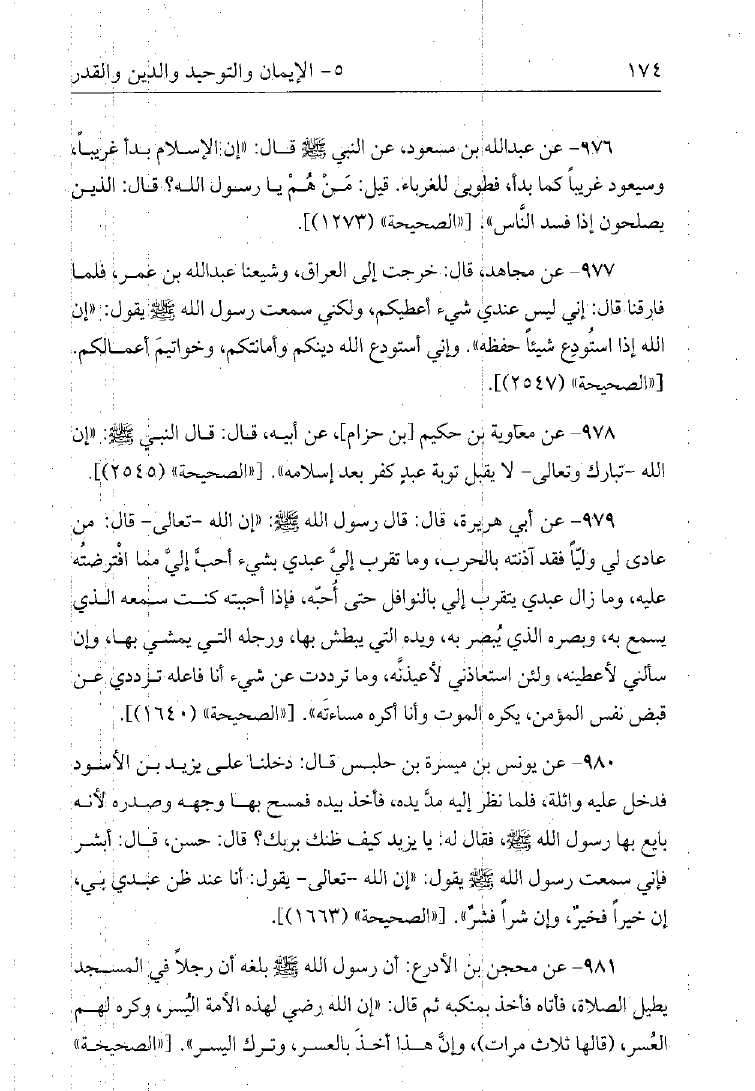 ١٧٤ ٥- الإيمان والتوحيد والدين والقدر
٩٧٦- عن عبدالله بن مسعود، عن النبي ﷺ قال: «إن الإسلام بدأ غريباً،
وسيعود غريباً كما بدأ، فطوبى للغرباء. قيل: مَنْ هُمْ يا رسول الله؟ قال: الذين
يصلحون إذا فسد النَّاس». [«الصحيحة» (١٢٧٣)].
٩٧٧- عن مجاهد، قال: خرجت إلى العراق، وشيعنا عبدالله بن عمر، فلما
فارقنا قال: إني ليس عندي شيء أعطيكم، ولكني سمعت رسول الله ﷺ يقول: «إن
الله إذا استُودِع شيئاً حفظه». وإني أستودع الله دينكم وأمانتكم، وخواتيمَ أعمالكم.
[«الصحيحة» (٢٥٤٧)].
٩٧٨- عن معاوية بن حكيم [بن حزام]، عن أبيه، قال: قال النبي ﷺ: «إن
الله -تبارك وتعالى- لا يقبل توبة عبدٍ كفر بعد إسلامه». [«الصحيحة» (٢٥٤٥)].
٩٧٩- عن أبي هريرة، قال: قال رسول الله ﷺ: «إن الله -تعالى- قال: من
عادى لي وليّاً فقد آذنته بالحرب، وما تقرب إليَّ عبدي بشيء أحبَّ إليَّ مما افْترضتُه
عليه، وما زال عبدي يتقرب إلي بالنوافل حتى أُحبّه، فإذا أحببته كنت سمعه الذي
يسمع به، وبصره الذي يُبصر به، ويده التي يبطش بها، ورجله التي يمشي بها، وإن
سألني لأعطينه، ولئن استعاذني لأعيذنَّه، وما ترددت عن شيء أنا فاعله ترددي عن
قبض نفس المؤمن، يكره الموت وأنا أكره مساءتَه». [«الصحيحة» (١٦٤٠)].
٩٨٠- عن يونس بن ميسرة بن حلبس قال: دخلنا على يزيد بن الأسود
فدخل عليه واثلة، فلما نظر إليه مدَّ يده، فأخذ بيده فمسح بها وجهه وصدره لأنه
بايع بها رسول الله ﷺ، فقال له: يا يزيد كيف ظنك بربك؟ قال: حسن، قال: أبشر
فإني سمعت رسول الله ﷺ يقول: «إن الله -تعالى- يقول: أنا عند ظن عبدي بي،
إن خيراً فخيرٌ، وإن شراً فشرٌ». [«الصحيحة» (١٦٦٣)].
٩٨١- عن محجن بن الأدرع: أن رسول الله ﷺ بلغه أن رجلاً في المسجد
يطيل الصلاة، فأتاه فأخذ بمنكبه ثم قال: «إن الله رضي لهذه الأمة اليُسر، وكره لهم
العُسر، (قالها ثلاث مرات)، وإنَّ هذا أخذَ بالعسر، وترك اليسر». [«الصحيحة»